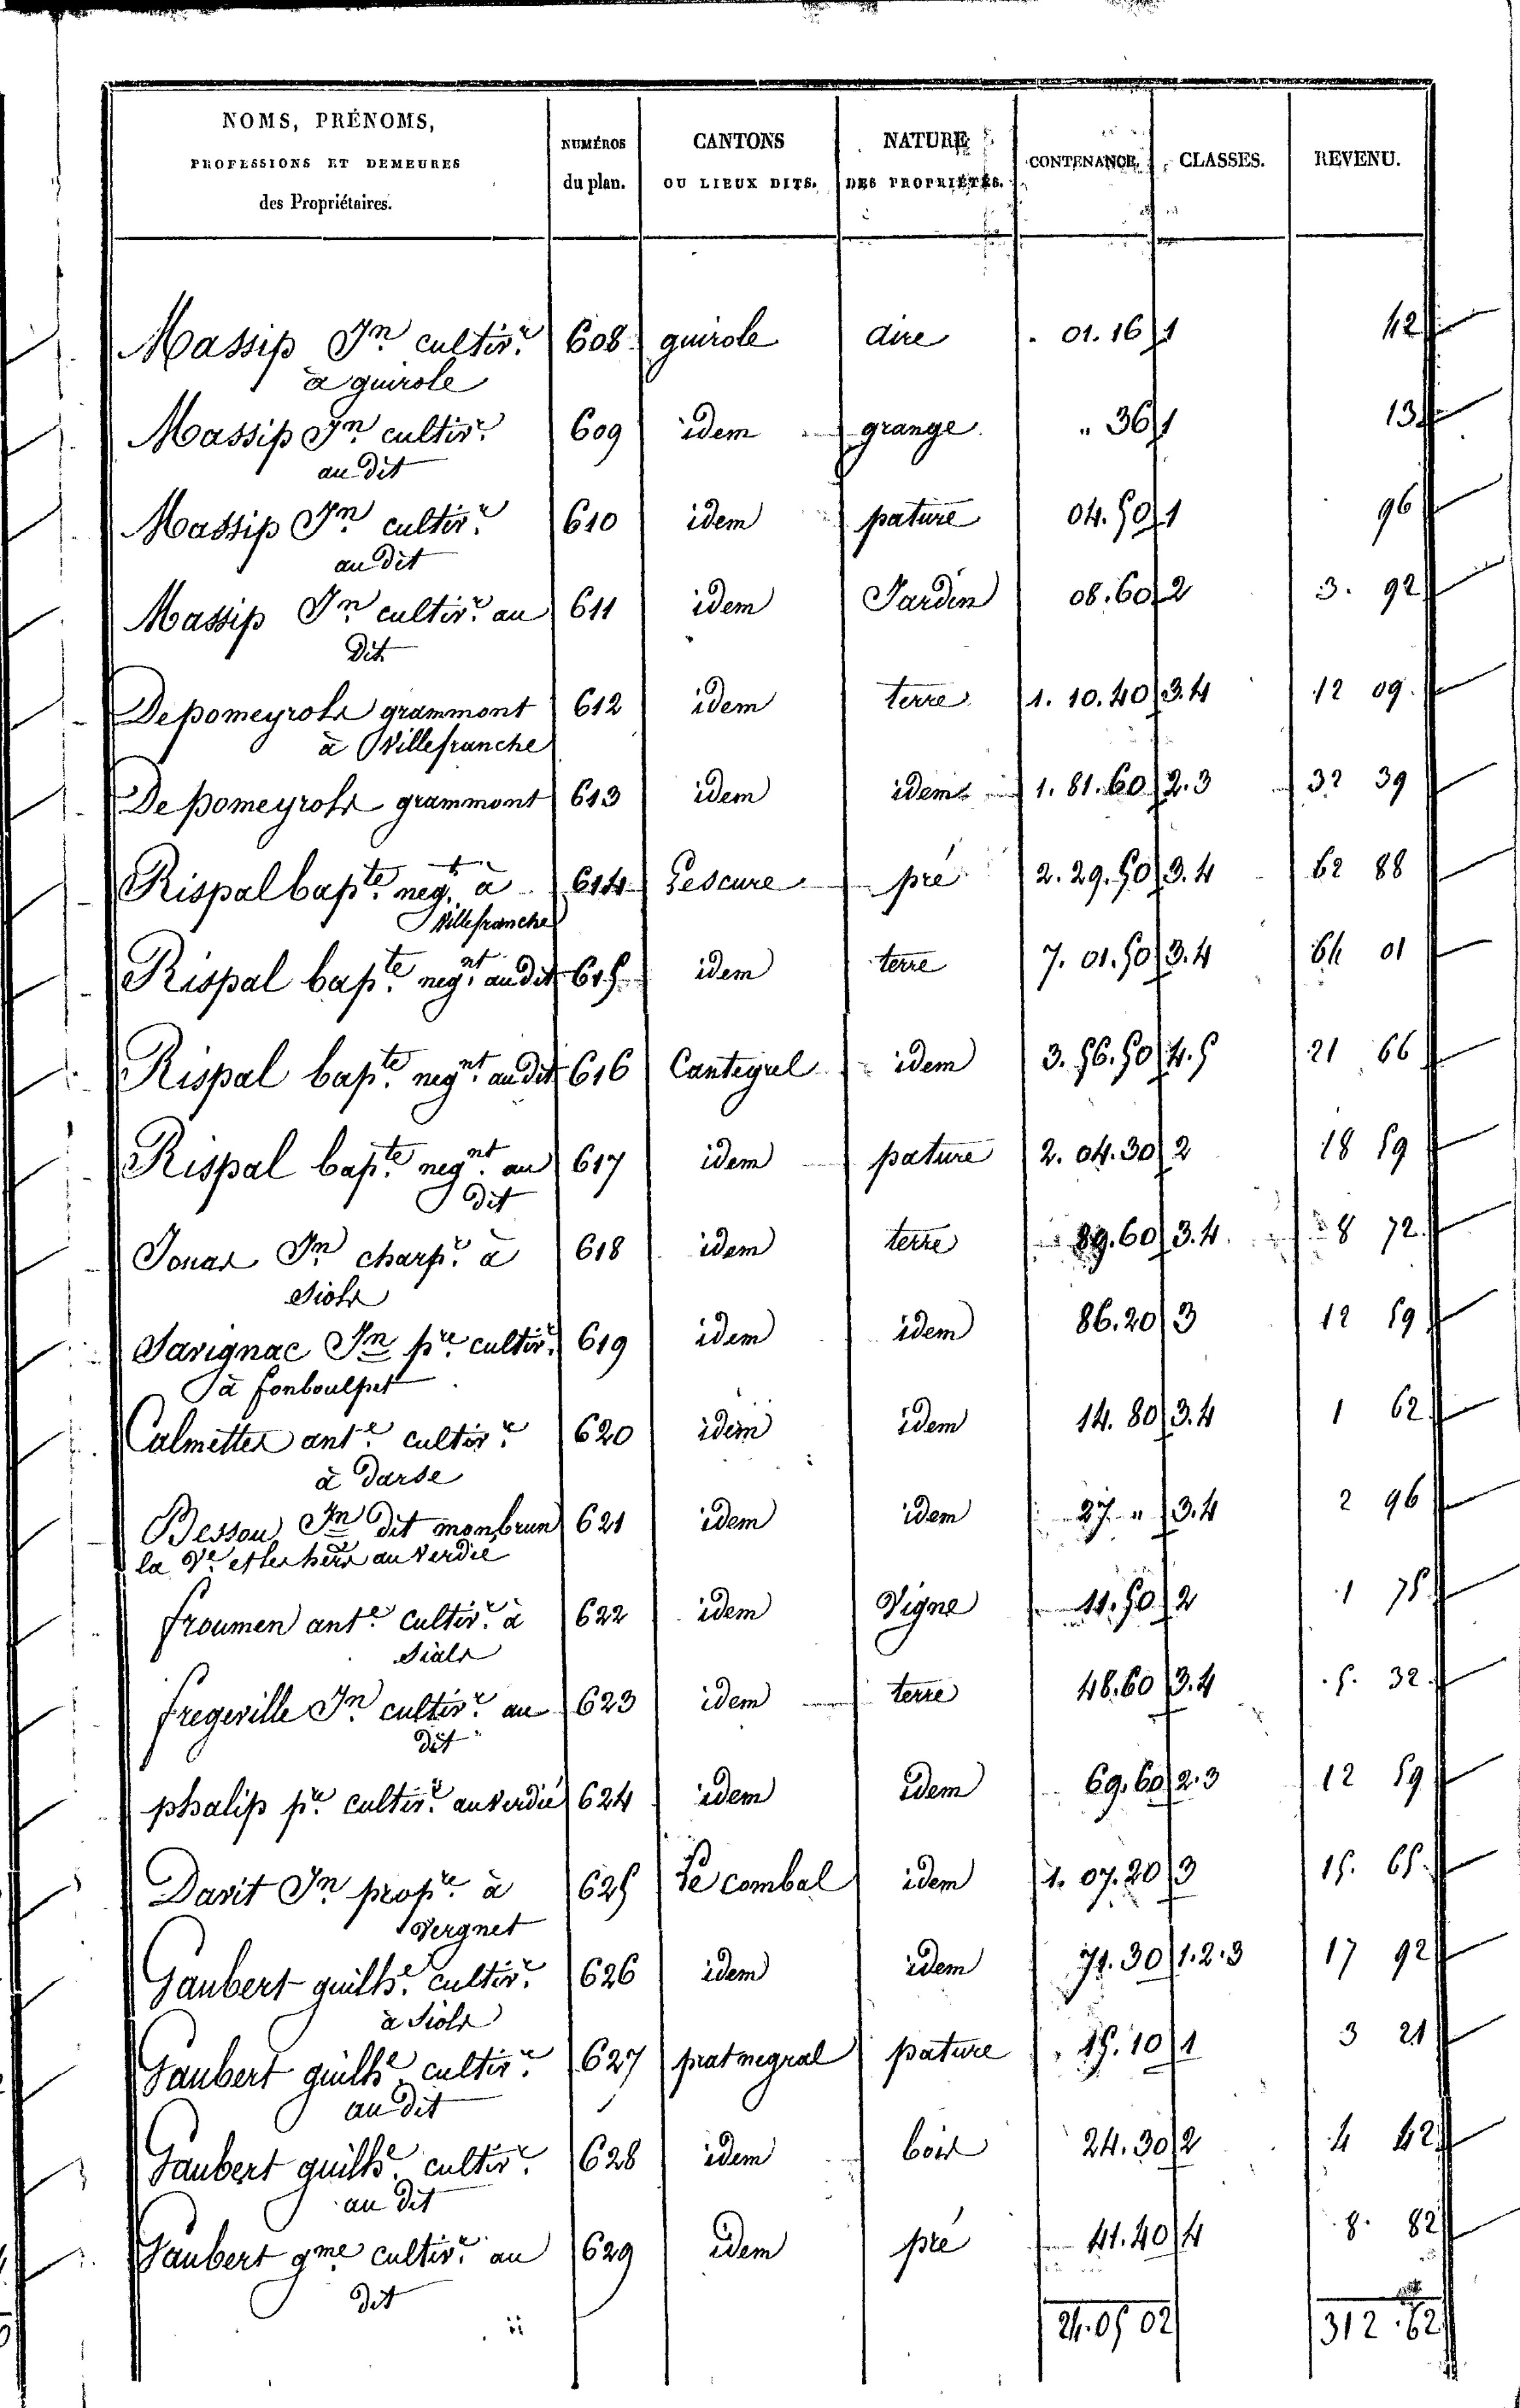 NOMS, PRÉNOMS,
PROFESSIONS ET DEMEURES
des Propriétaires.
NUMÉROS
du plan.
CANTONS
OU LIEUX DITS.
NATURE
DES PROPRIÉTÉS.
CONTENANCE.
CLASSES.
REVENU.
Massip Jn cultivr 608 guirole aire 01.16 1 42
à guirole
Massip Jn cultivr 609 idem grange " 36 1 13
au dit
Massip Jn cultivr 610 idem pature 04.50 1 96
au dit
Massip Jn cultivr au 611 idem Jardin 08.60 2 3. 92
dit
Depomeyrols grammont 612 idem terre 1. 10.40 3.4 12 09
à Villefranche
Depomeyrols grammont 613 idem idem 1. 81.60 2.3 32 39
Rispal bapte negt à 614 Lescure pré 2. 29.50 3.4 62 88
Villefranche
Rispal bapte negnt au dit 615 idem terre 7. 01.50 3.4 64 01
Rispal bapte negnt au dit 616 Cantegrel idem 3. 56.50 4.5 21 66
Rispal bapte negnt au 617 idem pature 2. 04.30 2 18 59
dit
Jonas Jn charpr à 618 idem terre 89.60 3.4 8 72
Siols
Savignac Jn pre cultivr 619 idem idem 86.20 3 12 59
à fonboulpet
Calmettes ante cultivr 620 idem idem 14. 80 3.4 1 62
à darde
Bessou Jn dit monbrun 621 idem idem 27 " 3.4 2 96
la Ve et les hers au verdié
froumen ante cultivr à 622 idem Vigne 11.50 2 1 75
Sials
fregeville Jn cultivr au 623 idem terre 48.60 3.4 5. 32
dit
phalip pre cultivr au verdié 624 idem idem 69.60 2.3 12 59
Davit Jn propre à 625 Le combal idem 1. 07.20 3 15. 65
Vergnet
Gaubert guilhe cultivr 626 idem idem 71.30 1.2.3 17 92
à Siols
Gaubert guilhe cultivr 627 prat negral pature 15.10 1 3 21
au dit
Gaubert guilhe cultivr 628 idem bois 24.30 2 4 42
au dit
Gaubert gme cultivr au 629 idem pré 41.40 4 8. 82
dit
24.05 02 312.62